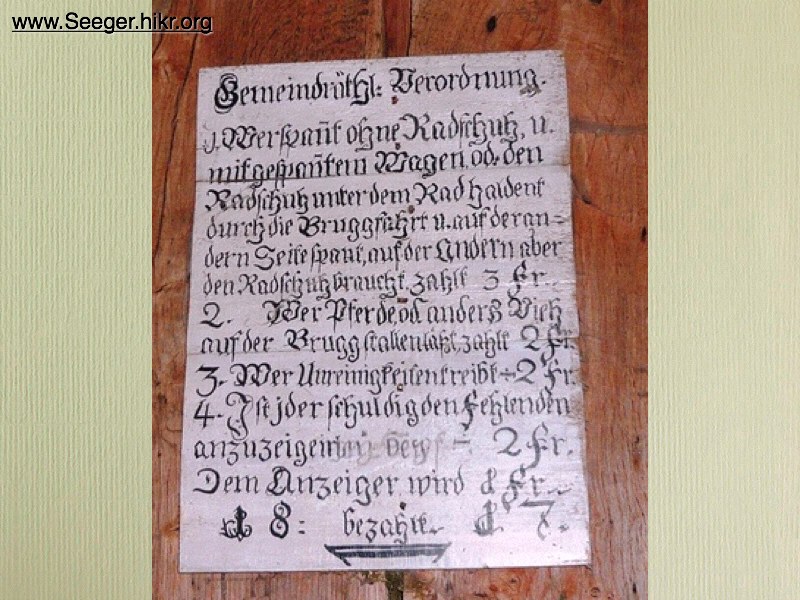 www.Seeger.hikr.org
Gemeindräthl: Verordnung.
1. Wer spañt ohne Radschuh, u.
mit gespañtem Wagen, od. den
Radschuh unter dem Rad haldent
durch die Brugg fährt u. auf der an=
dern Seite spant, auf der Andern aber
den Radschuh braucht, zahlt 3 Fr.
2. Wer Pferde od. anders Vieh
auf der Brugg stallen läßt, zahlt 2 Fr.
3. Wer Unreinigkeiten treibt 2 Fr.
4. Ist jder schuldig den Fehlenden
anzuzeigen 2 Fr.
Dem Anzeiger wird Fr.
8: bezahlt. 7.